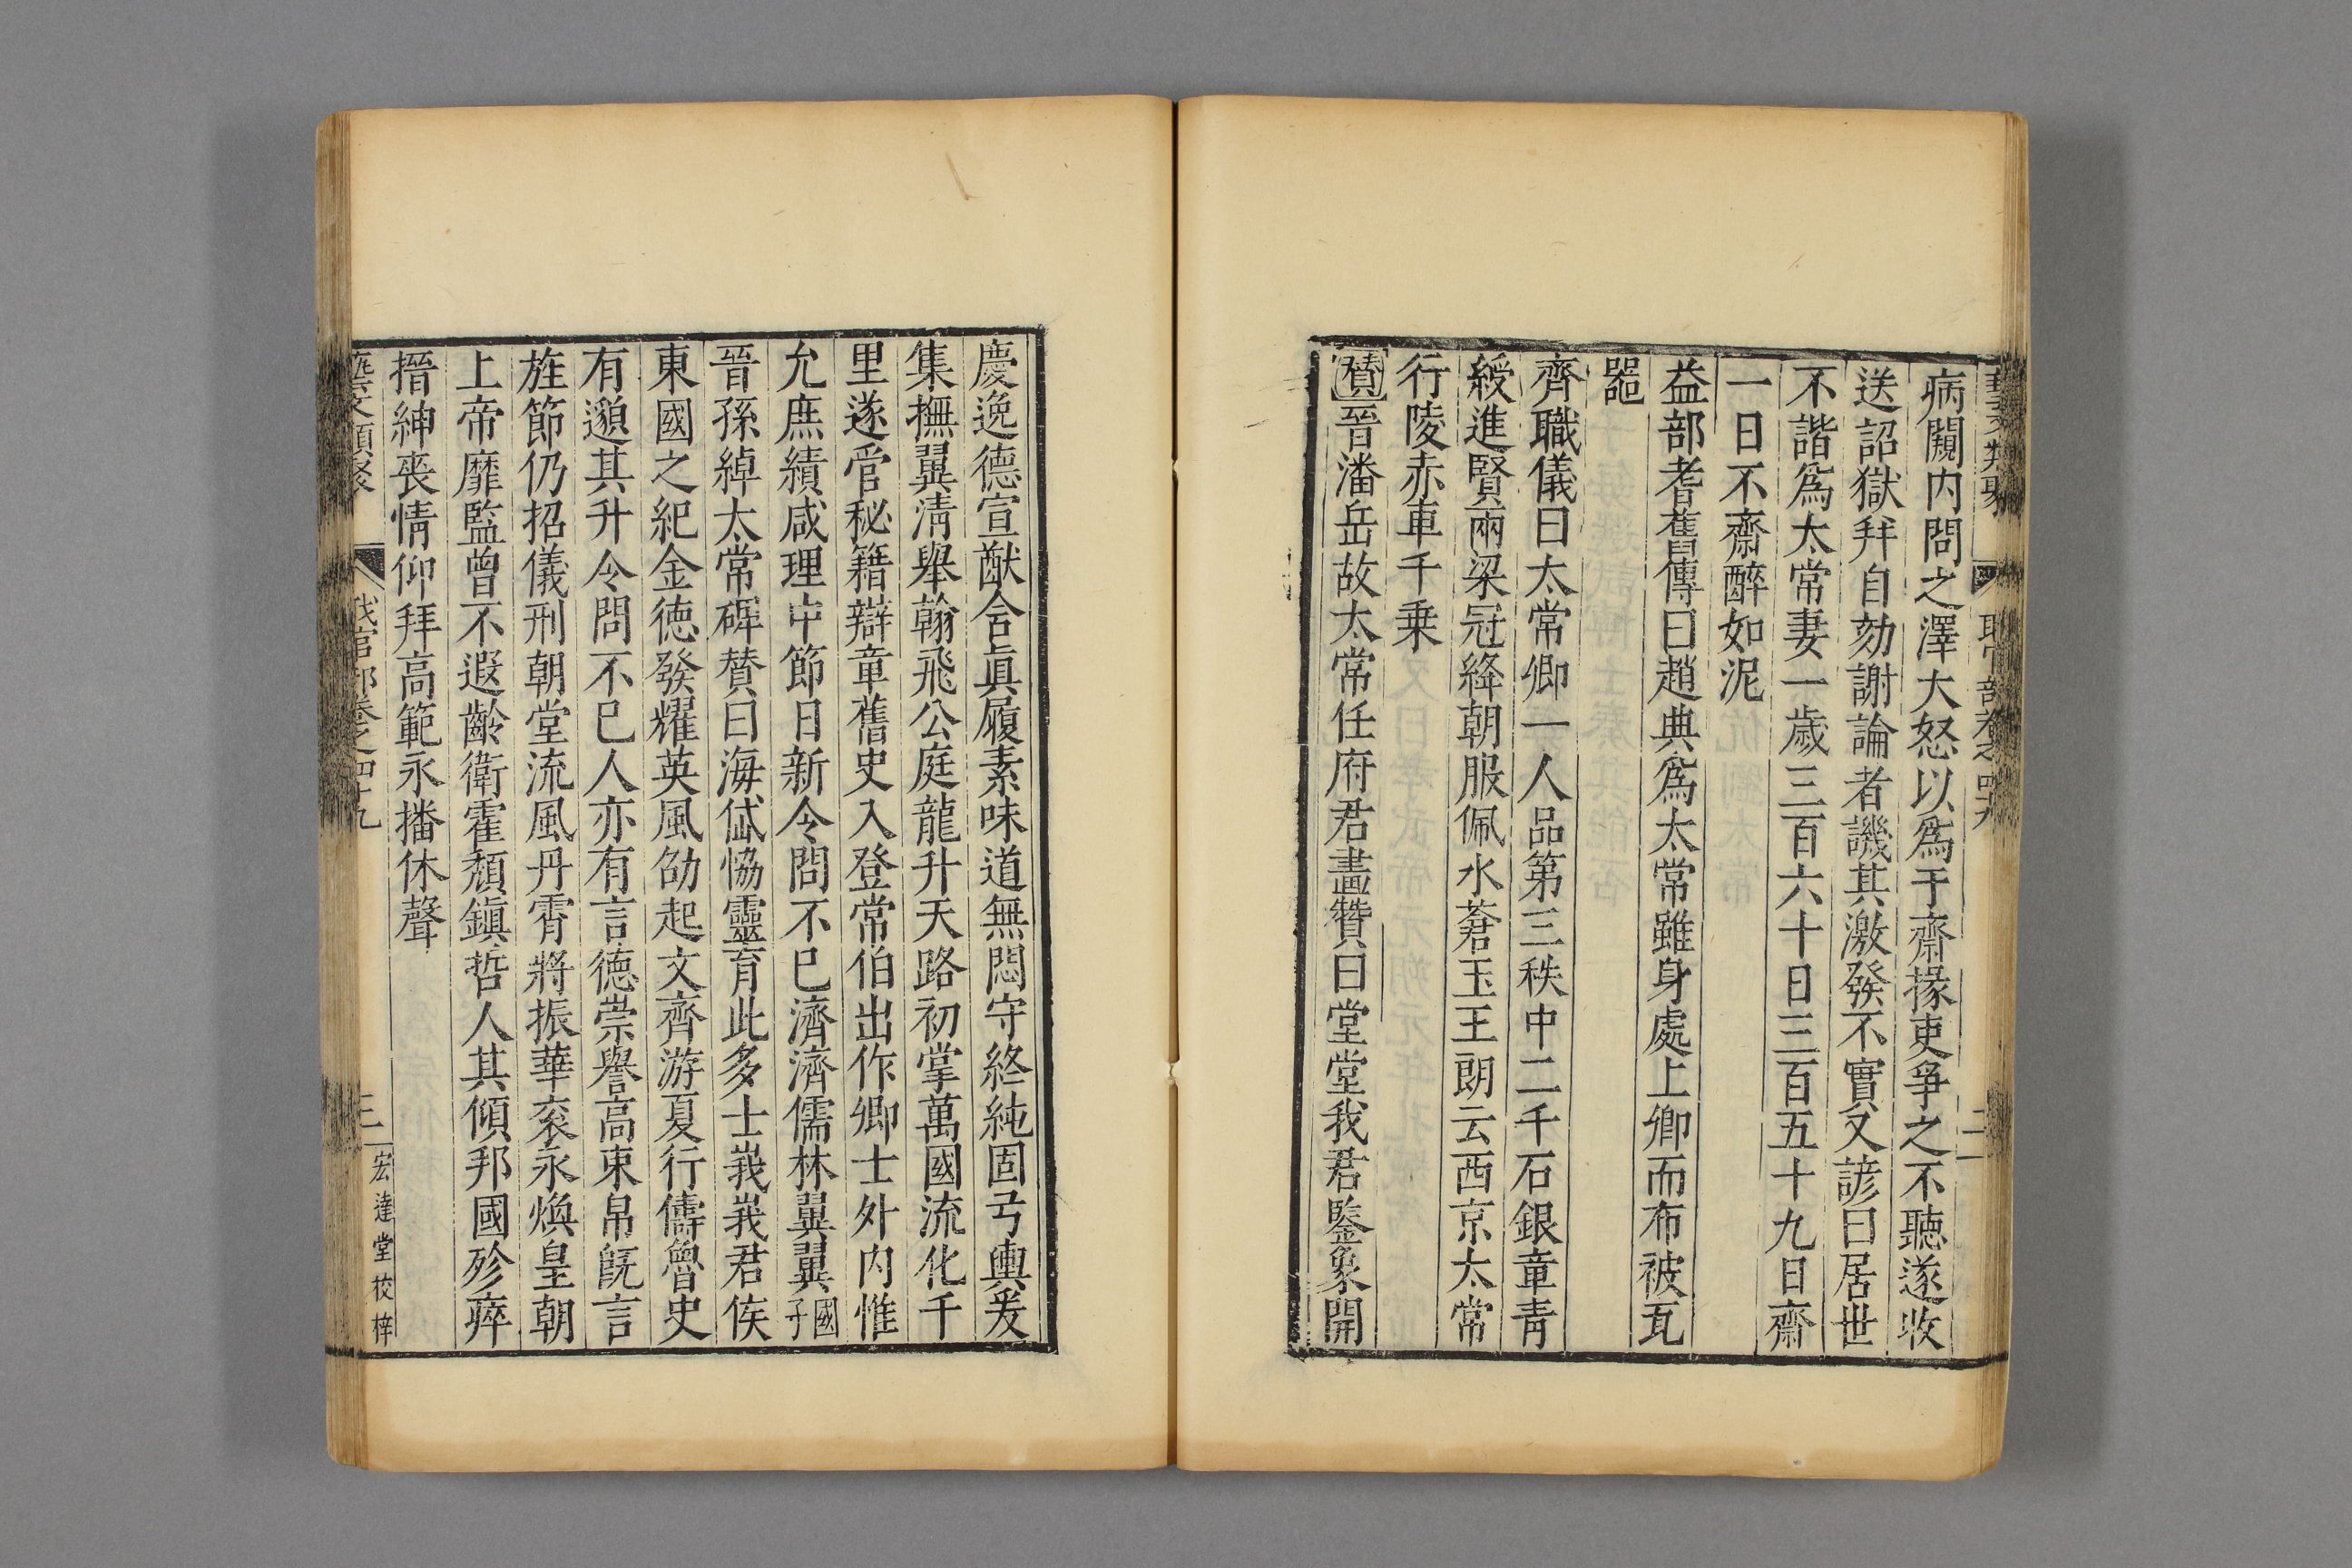 病闚内問之澤大怒以爲干齋掾吏爭之不聽遂收
送詔獄拜自劾謝論者譏其激發不實又諺曰居世
不諧爲太常妻一歲三百六十日三百五十九日齋
一日不齋醉如泥
益部耆舊傳曰趙典爲太常雖身處上卿而布被瓦
器
齊職儀曰太常卿一人品第三秩中二千石銀章青
綬進賢兩梁冠絳朝服佩水蒼玉王朗云西京太常
行陵赤車千乗
贊晉潘岳故太常任府君畫贊曰堂堂我君鑒象開
慶逸德宣猷含眞履素味道無悶守終純固弓輿爰
集撫翼淸舉翰飛公庭龍升天路初掌萬國流化千
里遂管秘籍辯章舊史入登常伯出作卿士外内惟
允庶績咸理中節日新令問不已濟濟儒林翼翼國子
晉孫綽太常碑贊曰海岱恊靈育此多士峩峩君侯
東國之紀金德發耀英風劭起文齊游夏行儔魯史
有邈其升令問不已人亦有言德崇譽高束帛旣言
旌節仍招儀刑朝堂流風丹霄將振華衮永煥皇朝
上帝靡監曾不遐齡衛霍頹鎭哲人其傾邦國殄瘁
搢紳喪情仰拜高範永播休聲
藝文類聚 職官部卷之四十九 三 宏達堂校梓